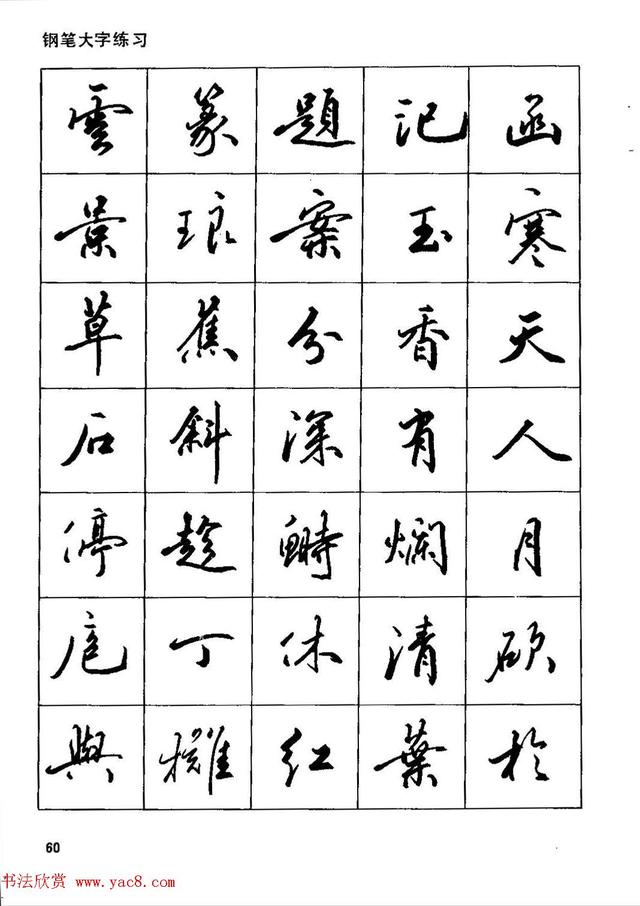 钢笔大字练习
雲篆題記函
景琅案玉寒
草蕉分香天
石斜深有人
停趁鰣爛月
扈丁休清碩
與 紅葉於
60
书法欣赏 www.yac8.com